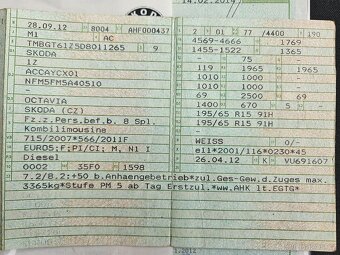 14.02.2014
28.09.12 8004 AHF000437
M1 AC
TMBGT61Z5D8011265 9
SKODA
1Z
ACCAYCX01
NFM5FM5A40510
-
OCTAVIA
SKODA (CZ)
Fz.z.Pers.bef.b. 8 Spl.
Kombilimousine
715/2007*566/2011F
EURO5;F;PI/CI; M, N1 I
Diesel
0002 35F0 1598
2 01 77 /4400 190
4569-4666 1769
1455-1522 1365
- 75 -
119 1965 1965
1010 1000 -
1010 1000 -
1400 670 5 -
195/65 R15 91H
195/65 R15 91H
-
WEISS 0/-
e11*2001/116*0230*45
26.04.12 K VU691607
7.2/8.2:+50 b.Anhaengebetrieb*zul.Ges-Gew.d.Zuges max.
3365kg*Stufe PM 5 ab Tag Erstzul.*ww.AHK lt.EGTG*